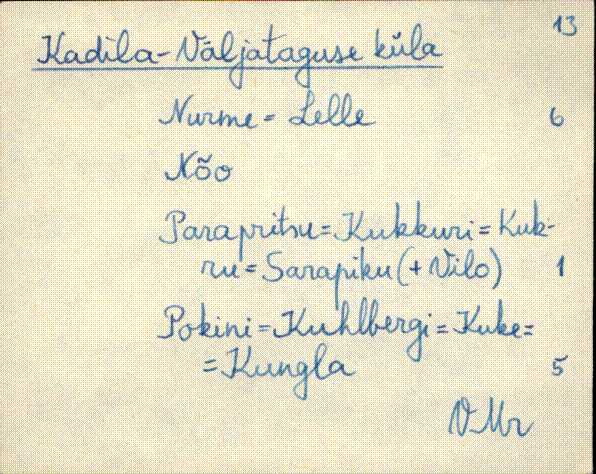 13
Kadila-Väljataguse küla
Nurme = Lelle 6
Nõo
Parapritsu = Kukkuri = Kuk-
ru = Sarapiku (+ Vilo) 1
Pokini = Kuhlbergi = Kuke =
= Kungla 5
VMr